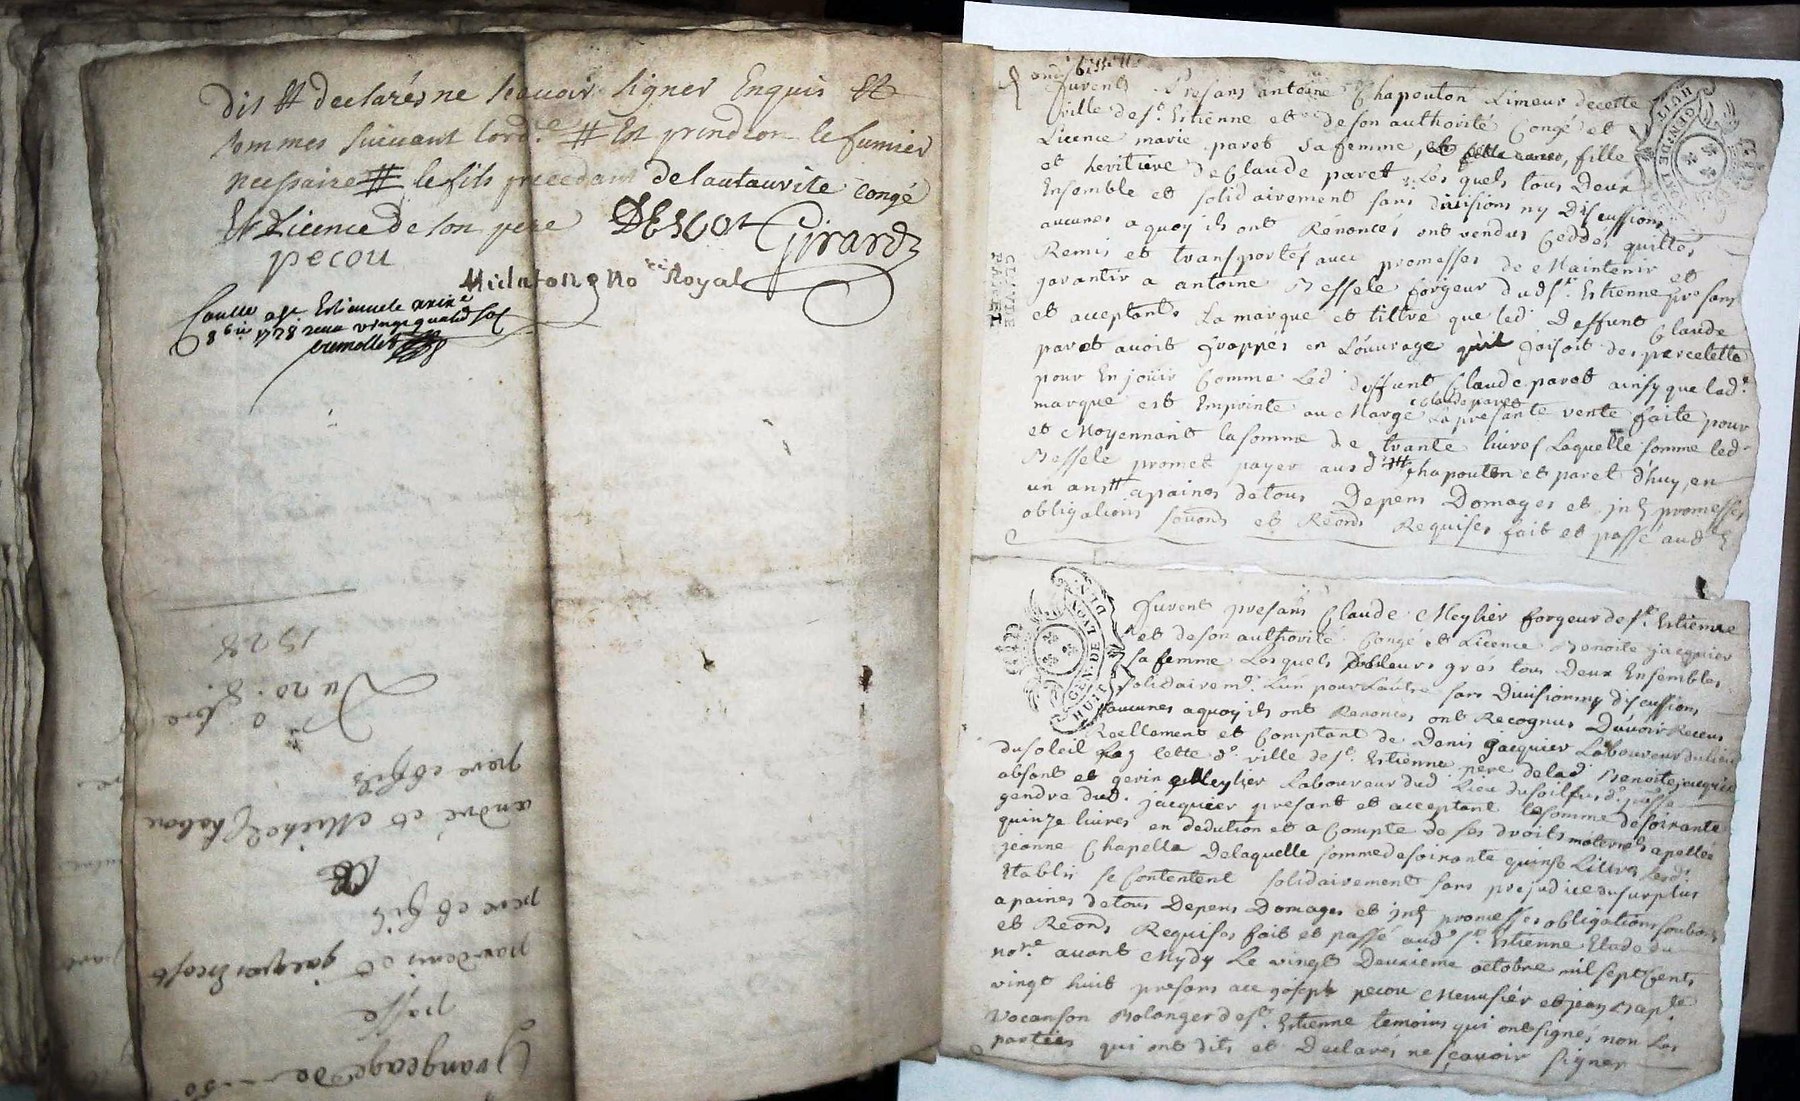 dit et declarés ne scavoir signer Enquis et
sommes suivant lord.ce # Et prendront le fumier
necessaire # le fils precedant de lautauvite congé
Et Licence de son pere DEscot Girard
pecou
No.re Royal
8bre 1728 vingt quatre sols
1728
Du 20. 8.bre
pere et fils
andré et Michel
pere et fils
par denis et jacques Escot
passé
Grangeage de
Furent presans antoine Chapouton Limeur de cette
ville de s.t Estienne et de son authorité Congé et
Licence marie paret sa femme, fille
et heritiere de Claude paret Les quels tous deux
Ensemble et solidairement sans divisions ny discussions
aucunes a quoy ils ont Renoncés ont vendus Ceddés, quittés,
Remis et transportés avec promesses de Maintenir et
garantir a antoine Bessele forgeur dud s.t Estienne presans
et acceptant La marque et tiltre que led Deffunt Claude
paret avoit frapper en Louvrage quil faisoit des percelette
pour En joüir Comme Led deffunt Claude paret ainsy que lad.e
marque est Imprinté au Marge Claude paret La presante vente faite pour
et Moyennant la somme de trante livres Laquelle somme led
Bessele promet payer aus d.ts Chapouton et paret d'huy en
un an a paines de tous Depens Domages et jnts promesses
obligations soubm et Renons Requises fait et passé aud
CLAUDE
PARET
GEN. DE LYON
HUIT DEN.
Furent presans Claude Meylier forgeur de s.t Estienne
et de son authorité Congé et Licence Benoite jacquier
sa femme Lesquels de leurs grés tous deux Ensembles
solidairem.t Lun pour Lautre sans Division ny discussions
aucunes a quoy ils ont Renoncés ont Recognus Davoir Receus
Reellement et Comptant de Denis jacquier Laboureur du lieu
du soleil cette d. ville de s.t Estienne pere de lad. Benoite jacquier
absant et gerin Meylier Laboureur dud. Lieu du soleil
gendre dud. jacquier presant et acceptant la somme de soixante
quinze livres en dedution et a Compte de ses droits maternels apellée
jeanne Chapelle De laquelle somme de soixante quinze Livres Lesd.
Etablis se Contentent solidairement sans prejudice du surplus
a paines de tous Depens Domages et jnts promesses obligations soubm
et Renons Requises fait et passé aud s.t Estienne Etude du
no.re avant Mydy Le vingt Deuxieme octobre mil sept Cents
vingt huit presans ace joseph pecou Menusier et jean Bap.te
Vocanson Bolanger de s.t Estienne temoins qui ont signés non Les
parties qui ont dits et Declarés ne sçavoir signer